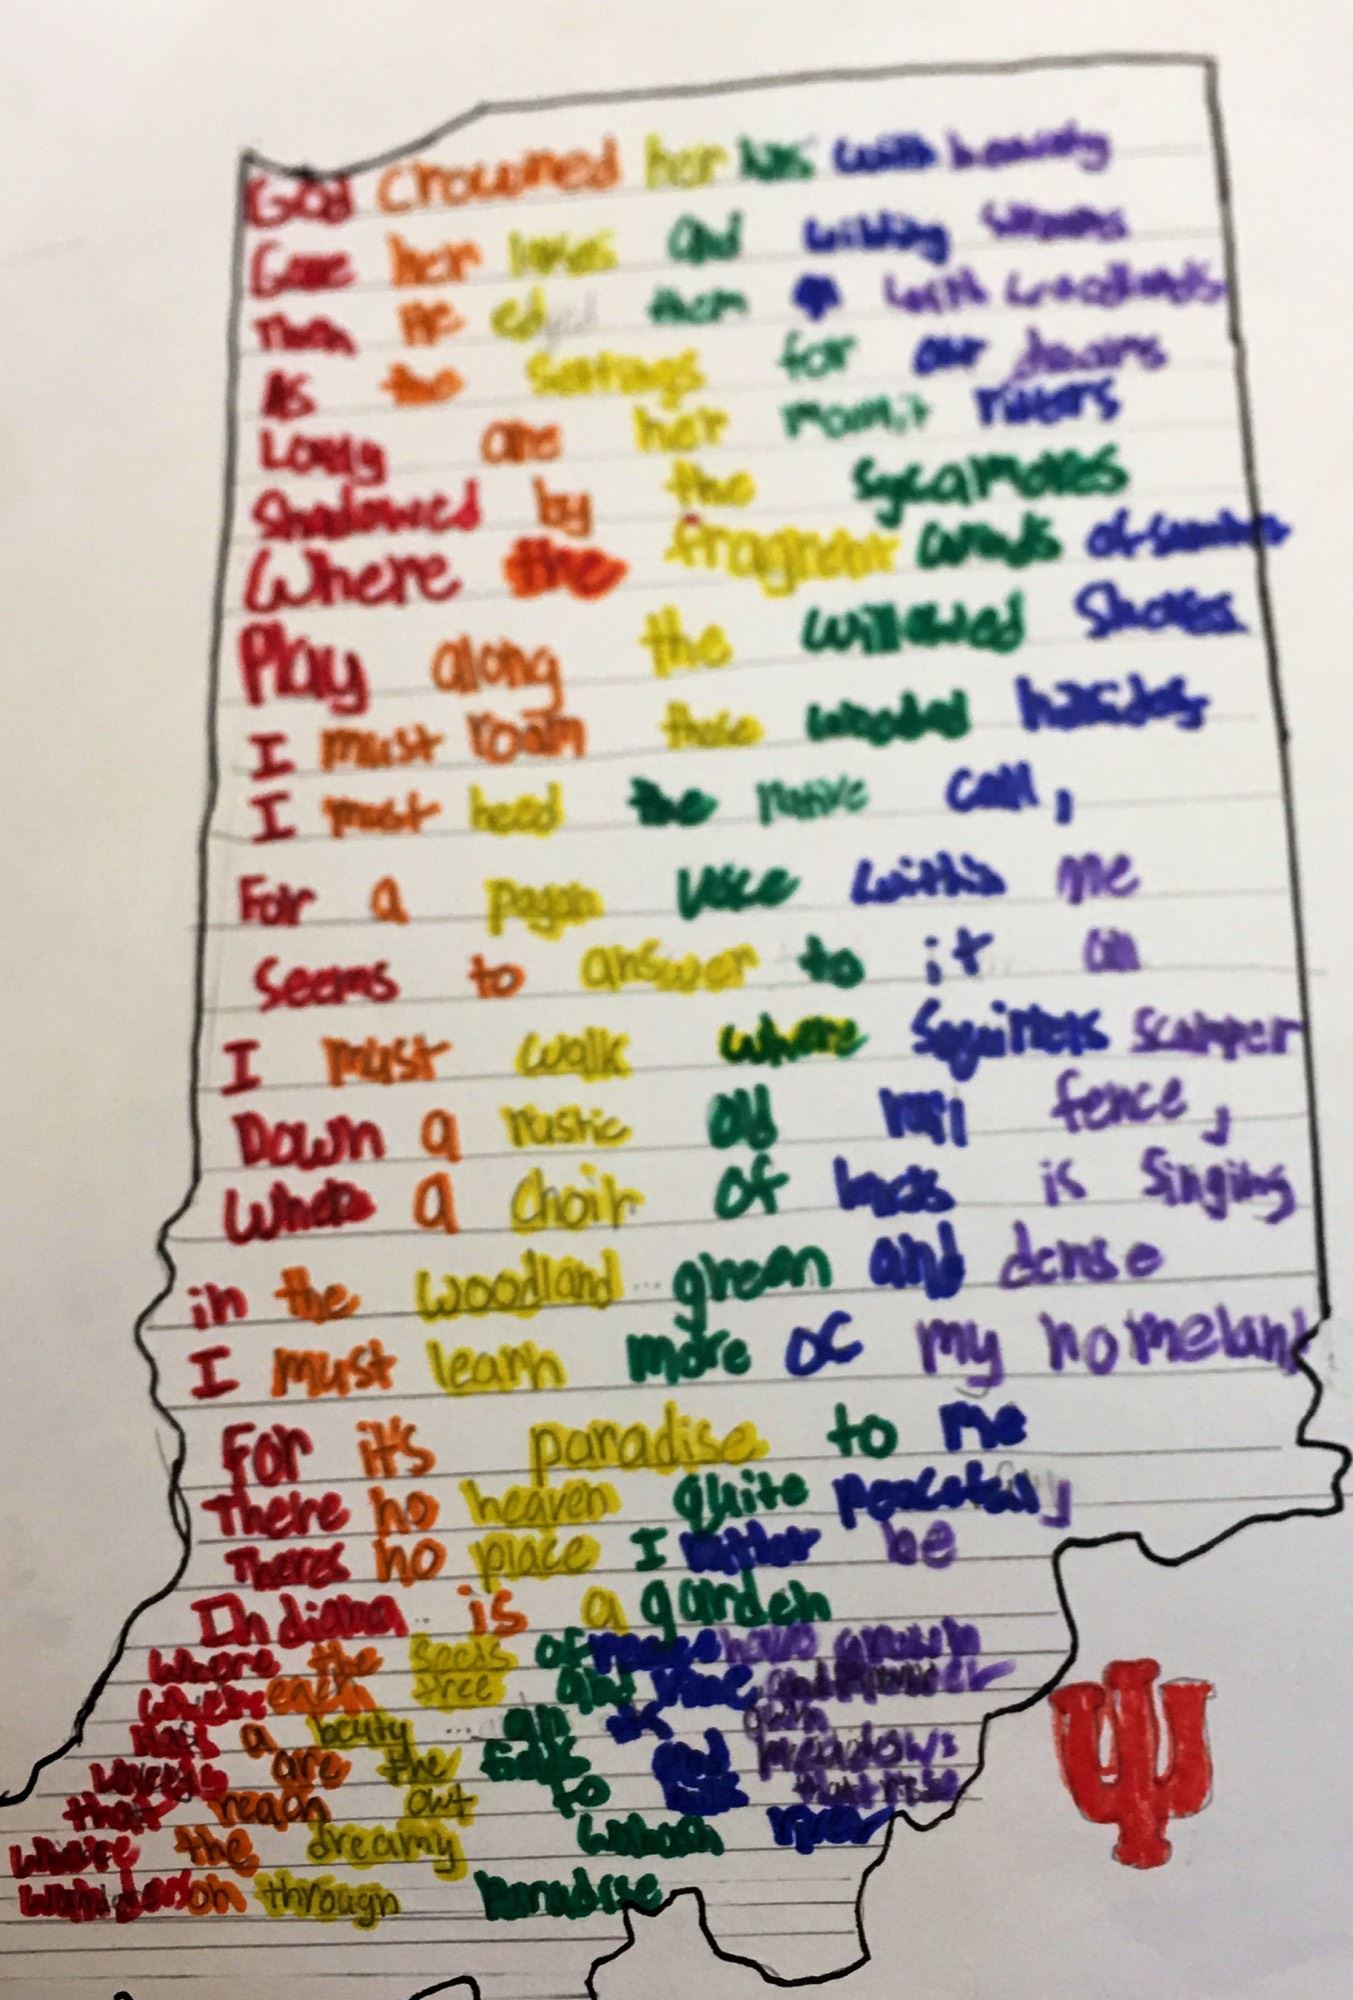 God Crowned her hills with beauty
Gave her lakes and winding streams
Then He edged them with woodlands
As the Settings for our dreams
Lovely are her moonlit rivers
Shadowed by the sycamores
Where the fragrant winds of summer
Play along the willowed Shores
I must roam those wooded hillsides
I must heed the native call,
For a pagan voice within me
Seems to answer to it all
I must walk where Squirrels scamper
Down a rustic old rail fence,
Where a choir of birds is Singing
in the woodland ... green and dense
I must learn more of my homeland
For it's paradise to me
There no heaven quite peaceful,
Theres no place I rather be
Indiana .. is a garden
Where the seeds of peace have grown
Where each tree and vine and flower
Has a beauty ... all its own
are the fields and meadows
that reach out to that rise
Where the dreamy Wabash river
Wanders on through Paradise
IU